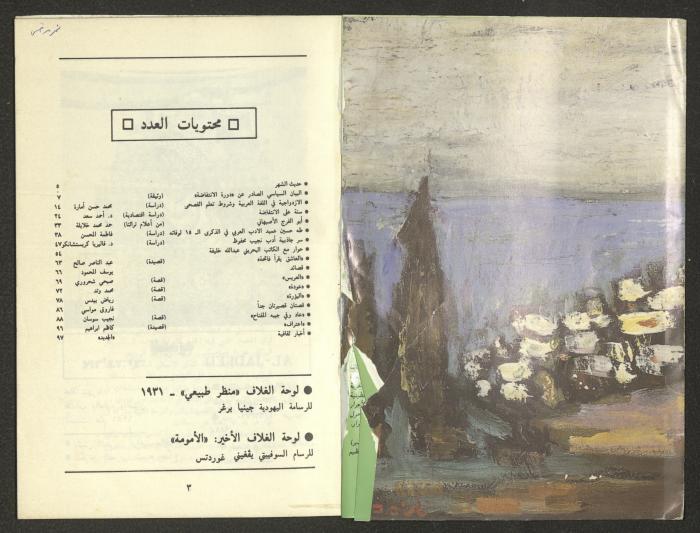 □ محتويات العدد □
● حديث الشهر ٥
● البيان السياسي الصادر عن «دورة الانتفاضة» (وثيقة) ٧
● الازدواجية في اللغة العربية وشروط تعلم الفصحى (دراسة) محمد حسن أمارة ١٤
● سنة على الانتفاضة (دراسة اقتصادية) د. أحمد سعد ٢٤
● أبو الفرج الأصبهاني (من أعلام تراثنا) حنا محمد خلايلة ٣٣
● طه حسين عميد الادب العربي في الذكرى الـ ١٥ لوفاته (دراسة) فاطمة المحسن ٣٨
● سر جاذبية أدب نجيب محفوظ (دراسة) د. فاليريا كريستشانكو ٤٧
● حوار مع الكاتب البحريني عبدالله خليفة ٥٤
● «العاشق يقرأ فاتحته» (قصيدة) عبد الناصر صالح ٦٣
● قصائد يوسف المحمود ٦٦
● «العريس» (قصة) صبحي شحروري ٦٩
● «عودة» (قصة) محمد وتد ٧٢
● «البؤرة» (قصة) رياض بيدس ٧٨
● قصتان قصيرتان جداً فاروق مواسي ٨٦
● «عاد وفي جيبه المفتاح» (قصة) نجيب سوسان ٨٨
● «اعتراف» (قصيدة) كاظم ابراهيم ٩٦
● أخبار ثقافية «الجديد» ٩٧
● لوحة الغلاف «منظر طبيعي» ـ ١٩٣١
للرسامة اليهودية جينيا برغر
● لوحة الغلاف الأخير: «الأمومة»
للرسام السوفييتي يفغيني غوردتس
٣